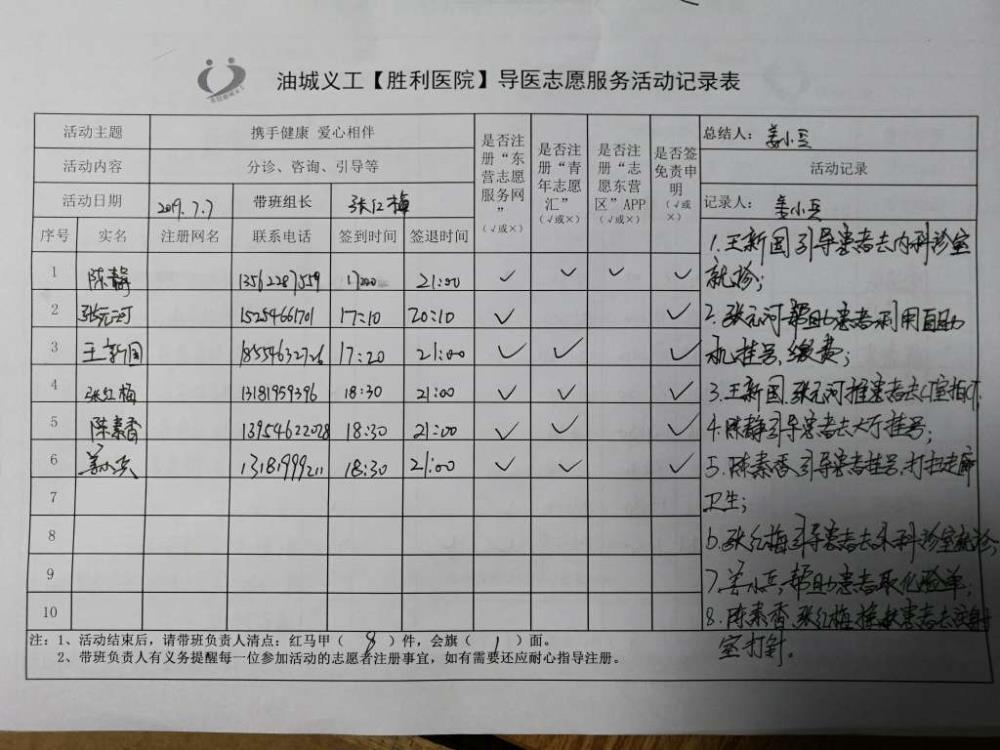 油城义工【胜利医院】导医志愿服务活动记录表
活动主题 携手健康 爱心相伴
活动内容 分诊、咨询、引导等
活动日期 2019.7.7 带班组长 张红梅
是否注册“东营志愿服务网”（√或×）
是否注册“青年志愿汇”（√或×）
是否注册“志愿东营区”APP（√或×）
是否签免责申明（√或×）
总结人：姜小兵
活动记录
记录人：姜小兵
序号 实名 注册网名 联系电话 签到时间 签退时间
1 陈静 13562287559 21:00 √ √ √ √
2 张元河 15254661701 17:10 20:10 √ √
3 王新国 17:20 21:00 √ √ √
4 张红梅 13181959396 18:30 21:00 √ √ √
5 陈素香 13954622028 18:30 21:00 √ √ √
6 13181999211 18:30 21:00 √ √ √
7
8
9
10
1.王新国引导患者去内科诊室
就诊；
2.张元河帮助患者利用自助
机挂号，缴费；
3.王新国.张元河推患者去CT室拍CT.
4.陈静引导患者去大厅挂号；
5.陈素香引导患者挂号，打扫走廊
卫生；
6.张红梅引导患者去 科诊室就诊；
7.姜小兵，帮助患者取化验单；
8.陈素香.张红梅 患者去注射
室打针。
注：1、活动结束后，请带班负责人清点：红马甲（ 8 ）件，会旗（ 1 ）面。
2、带班负责人有义务提醒每一位参加活动的志愿者注册事宜，如有需要还应耐心指导注册。